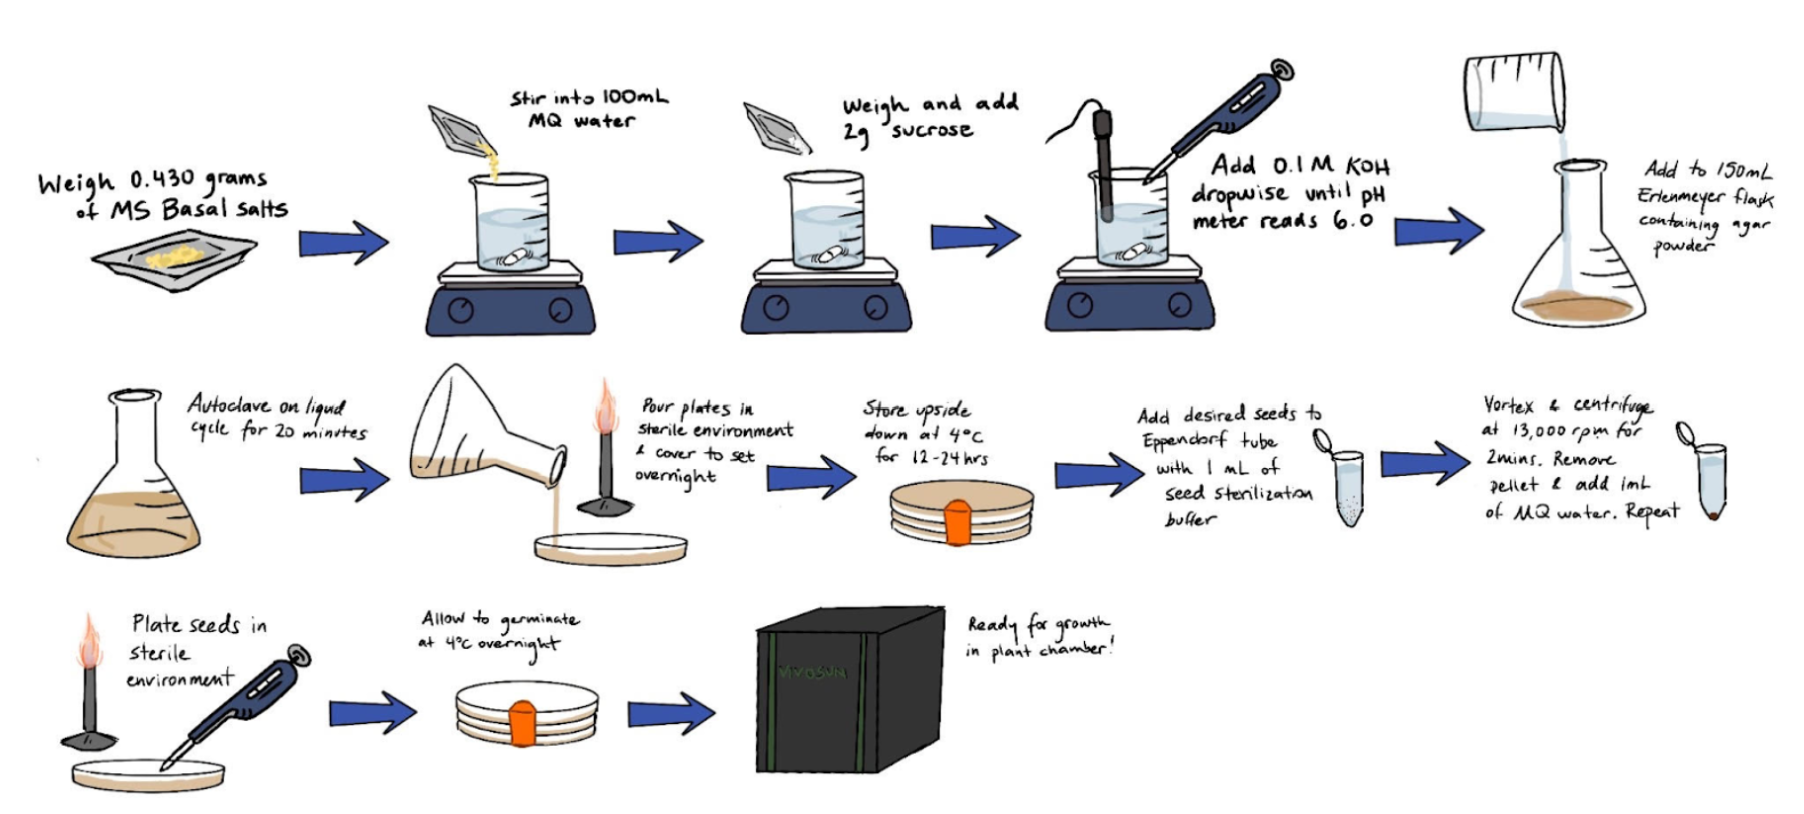 Weigh 0.430 grams
of MS Basal salts
Stir into 100mL
MQ water
Weigh and add
2g sucrose
Add 0.1M KOH
dropwise until pH
meter reads 6.0
Add to 150mL
Erlenmeyer flask
containing agar
powder
Autoclave on liquid
cycle for 20 minutes
Pour plates in
sterile environment
& cover to set
overnight
Store upside
down at 4°C
for 12-24hrs
Add desired seeds to
Eppendorf tube
with 1 mL of
seed sterilization
buffer
Vortex & centrifuge
at 13,000 rpm for
2mins. Remove
pellet & add 1mL
of MQ water. Repeat
Plate seeds in
sterile
environment
Allow to germinate
at 4°C overnight
VIVOSUN
Ready for growth
in plant chamber!